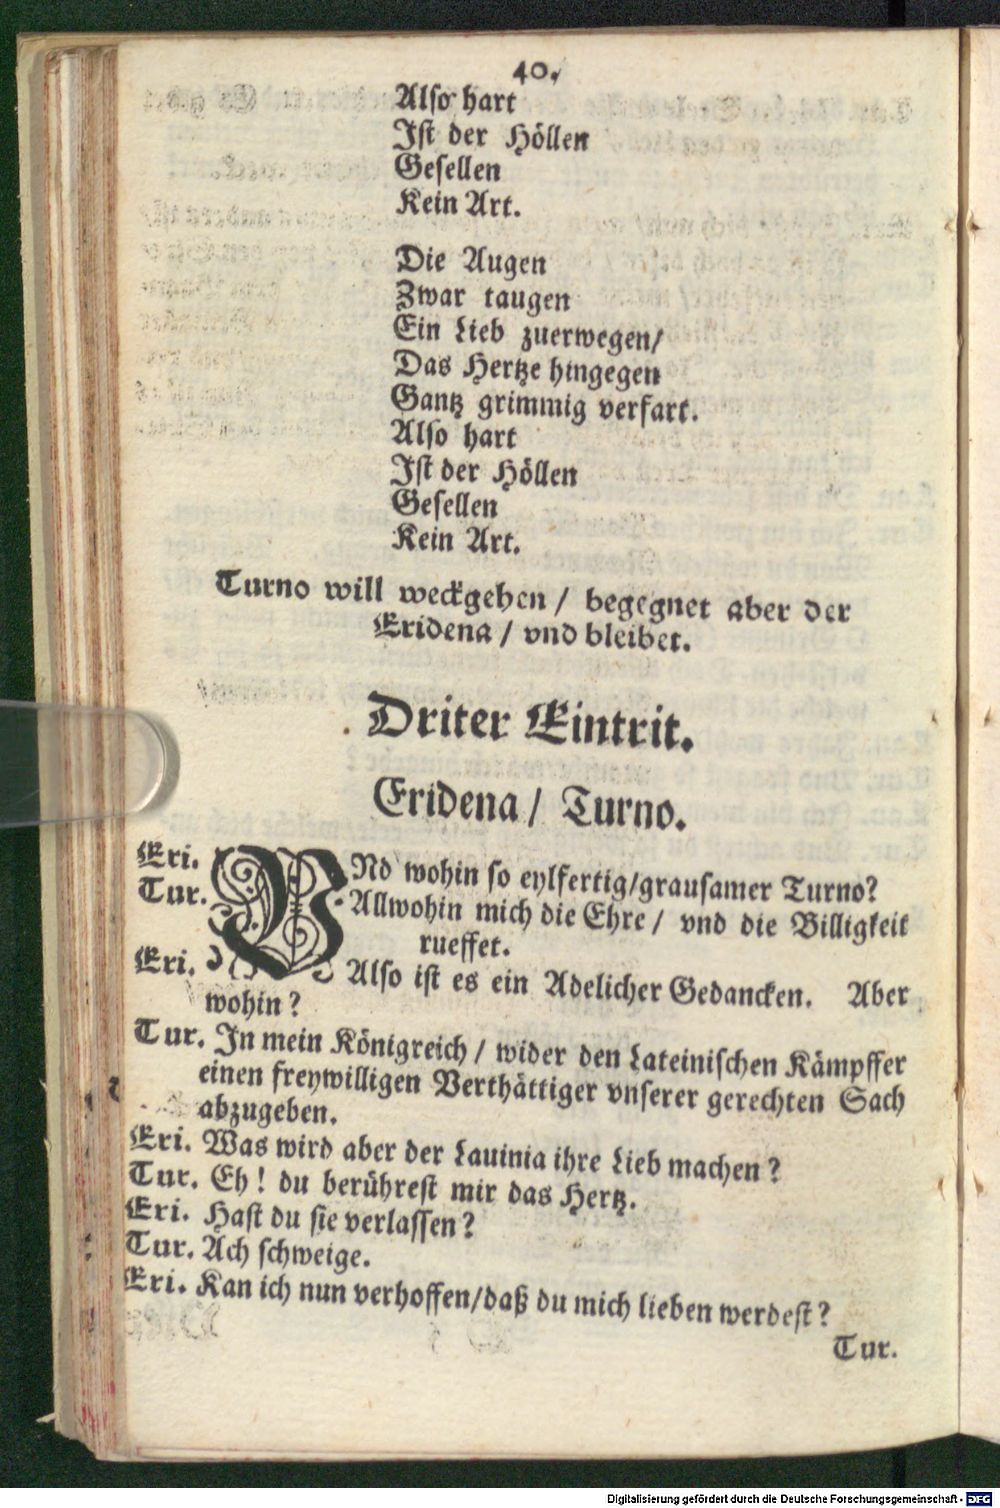 40.
Also hart
Ist der Höllen
Gesellen
Kein Art.
Die Augen
Zwar taugen
Ein Lieb zuerwegen/
Das Hertze hingegen
Gantz grimmig verfart.
Also hart
Ist der Höllen
Gesellen
Kein Art.
Turno will weckgehen / begegnet aber der
Eridena / vnd bleibet.
Driter Eintrit.
Eridena / Turno.
Eri. VNd wohin so eylfertig/grausamer Turno?
Tur. Allwohin mich die Ehre / vnd die Billigkeit
rueffet.
Eri. Also ist es ein Adelicher Gedancken. Aber
wohin?
Tur. In mein Königreich / wider den Lateinischen Kämpffer
einen freywilligen Verthättiger vnserer gerechten Sach
abzugeben.
Eri. Was wird aber der Lauinia ihre Lieb machen?
Tur. Eh! du berührest mir das Hertz.
Eri. Hast du sie verlassen?
Tur. Ach schweige.
Eri. Kan ich nun verhoffen/daß du mich lieben werdest?
Tur.
Digitalisierung gefördert durch die Deutsche Forschungsgemeinschaft - DFG